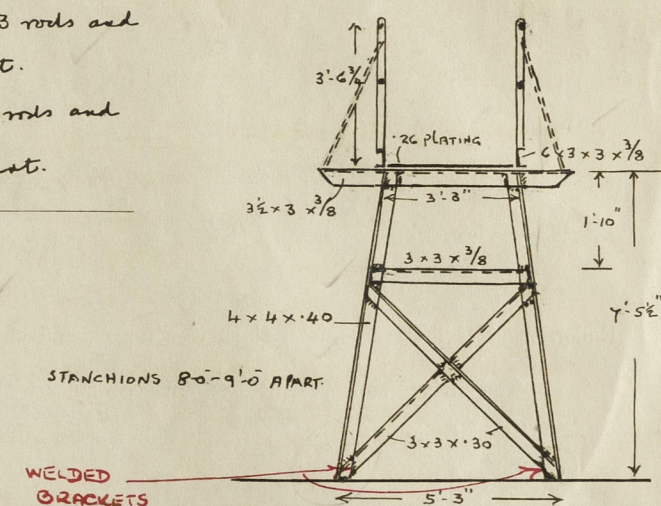 3 rods and
t.
rods and
at.
3'-6 3/8
.26 PLATING
6 x 3 x 3 x 3/8
3½ x 3 x 3/8
3'-3"
1'-10"
3 x 3 x 3/8
4 x 4 x .40
7'-5½"
STANCHIONS 8'-0"-9'-0" APART.
3 x 3 x .30
WELDED
BRACKETS
5'-3"